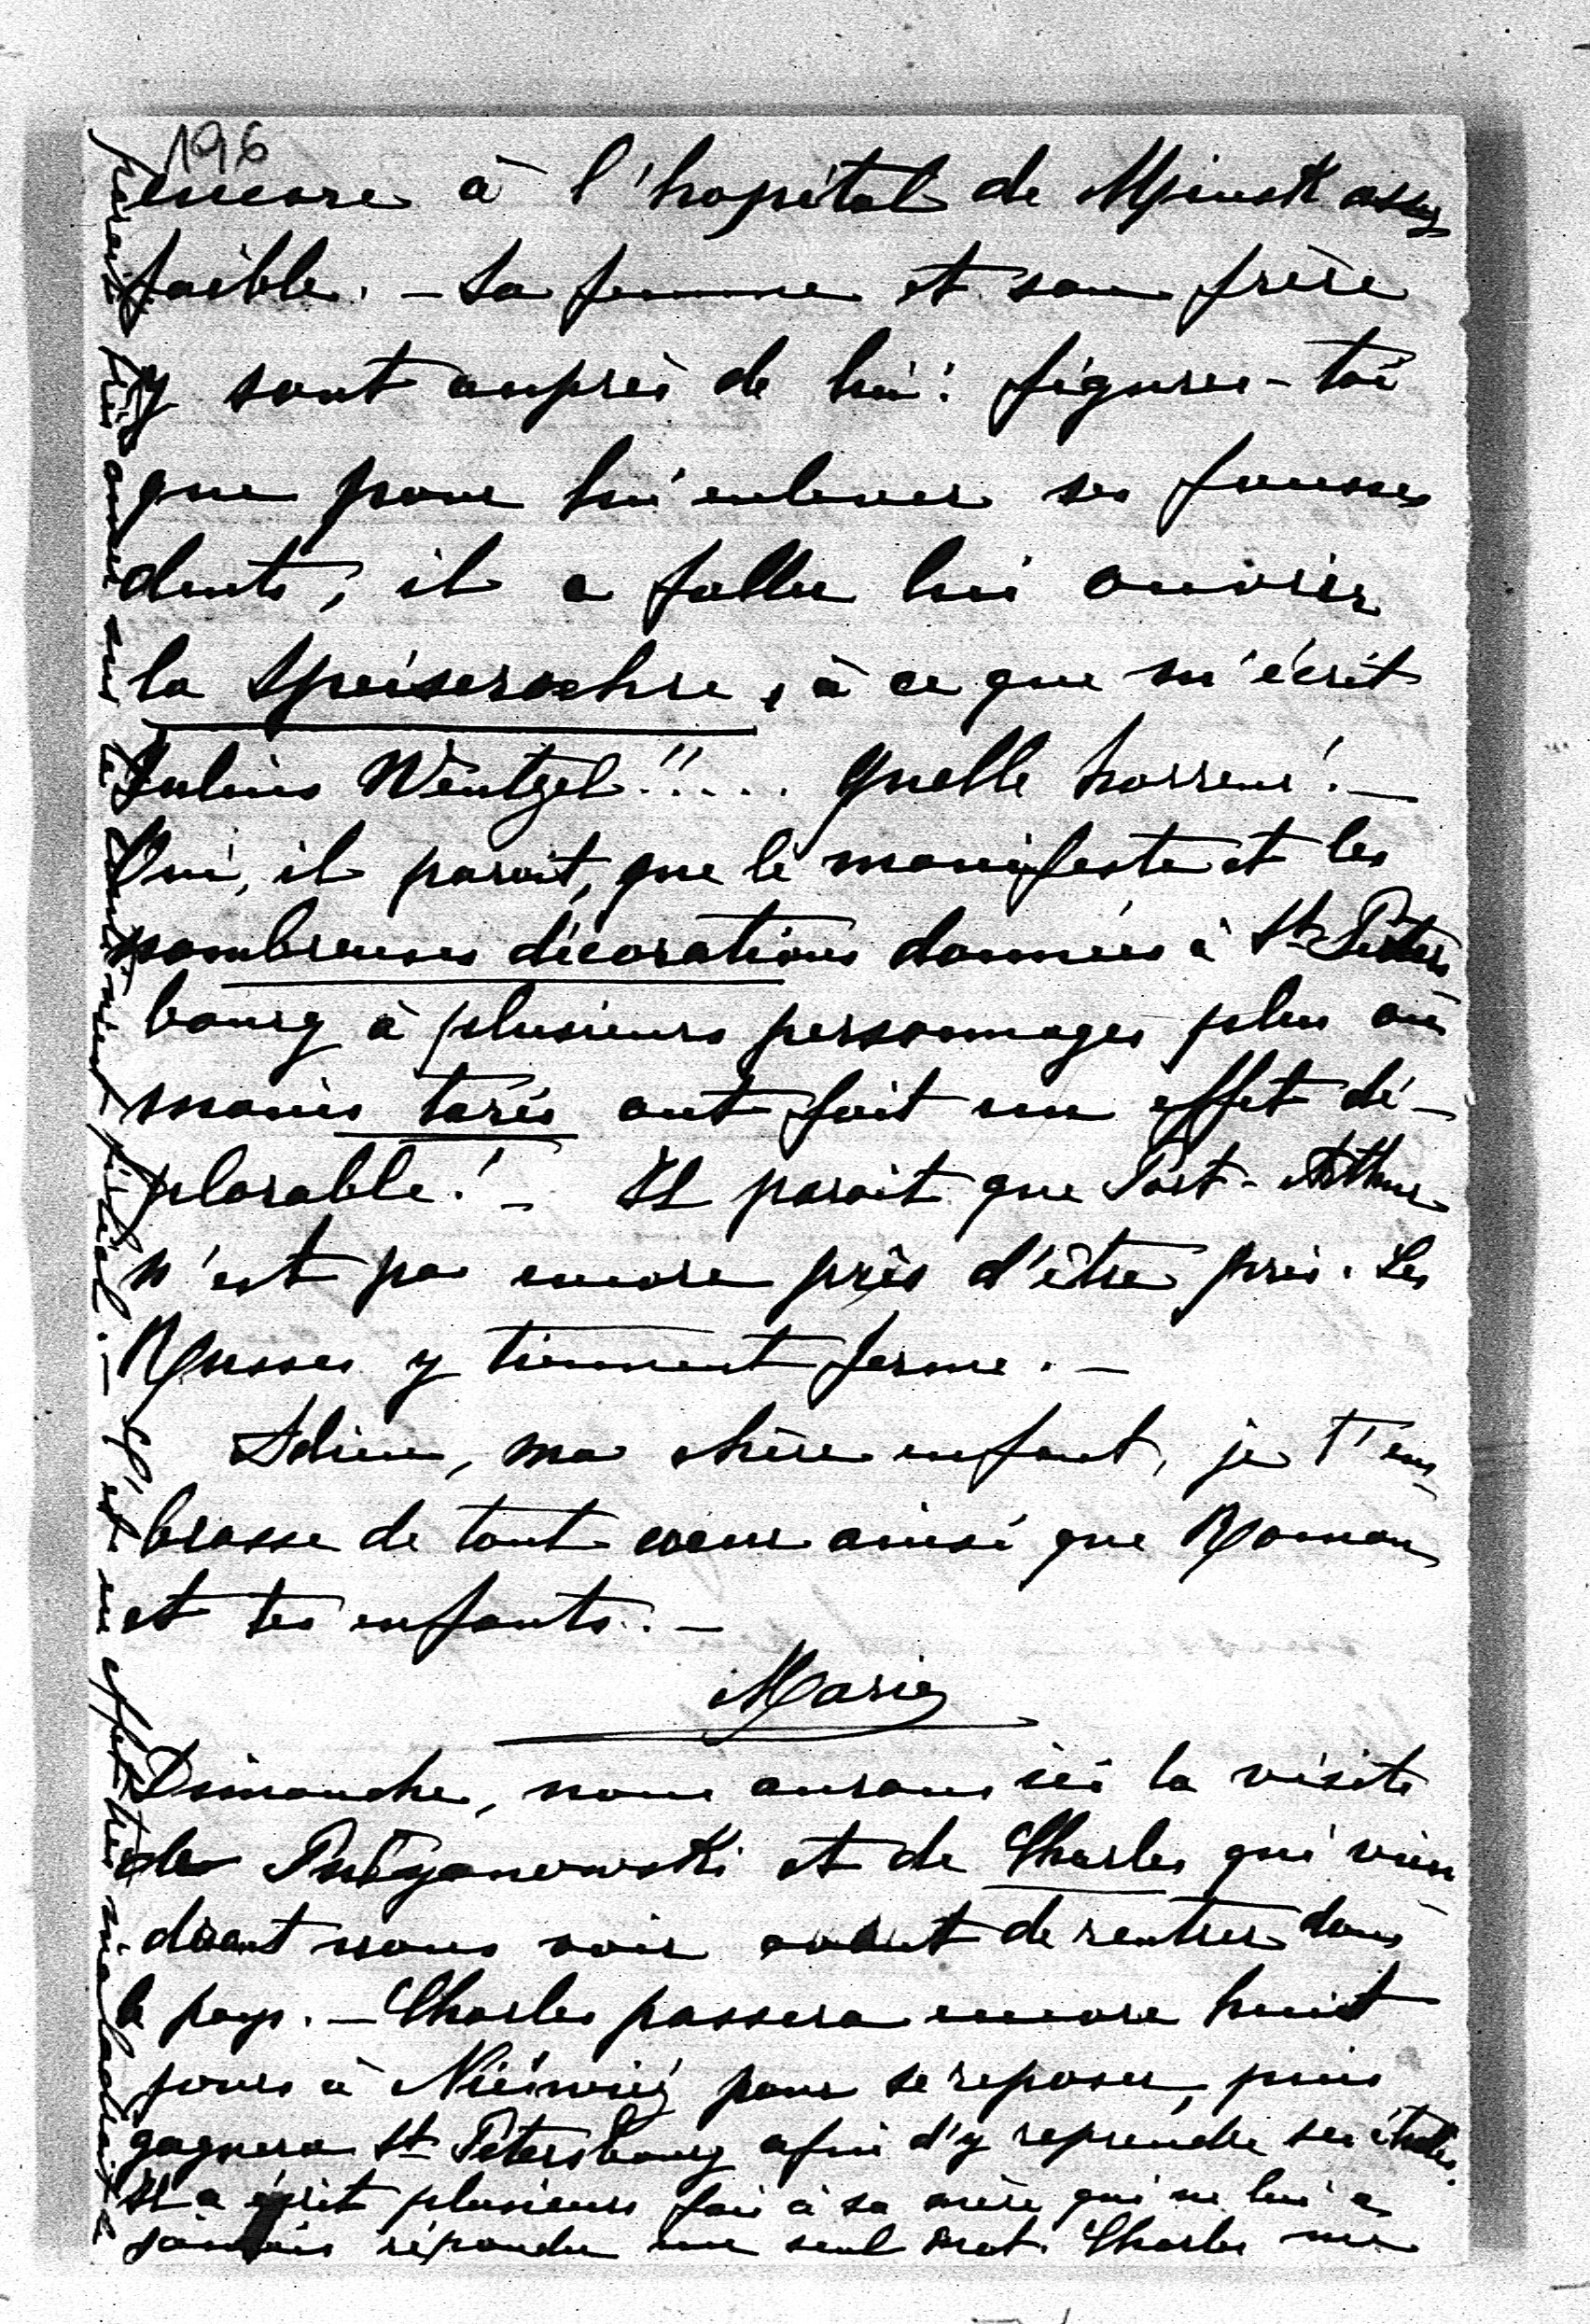 196
encore à l'hopital de Minsk assez
faible. – Sa femme et son frère
y sont auprès de lui! figures-toi
que pour lui enlever ses fausses
dents, il a fallu lui ouvrir
la Speiseroehre, à ce que m'écrit
Julius Wentzel!!.... Quelle horreur! –
Oui, il parait, que le manifeste et les
nombreuses décorations données à St Péters
bourg à plusieurs personnages plus ou
moins tarés ont fait un effet dé-
plorable! – Il parait que Port-Arthur
n'est pas encore près d'être pris. Les
Russes y tiennent ferme. –
Adieu, ma chère enfant, je t'em
brasse de tout coeur ainsi que Roman
et tes enfants. –
Marie
Dimanche, nous aurons ici la visite
des et de Charles qui vien
dront nous voir avant de rentrer dans
le pays. – Charles passera encore huit
jours à Nieśwież pour se reposer, puis
gagnera St Pétersbourg afin d'y reprendre ses études.
Il a écrit plusieurs fois à sa mère qui ne lui a
jamais répondu un seul mot. Charles me
parait très
C'est en effet très